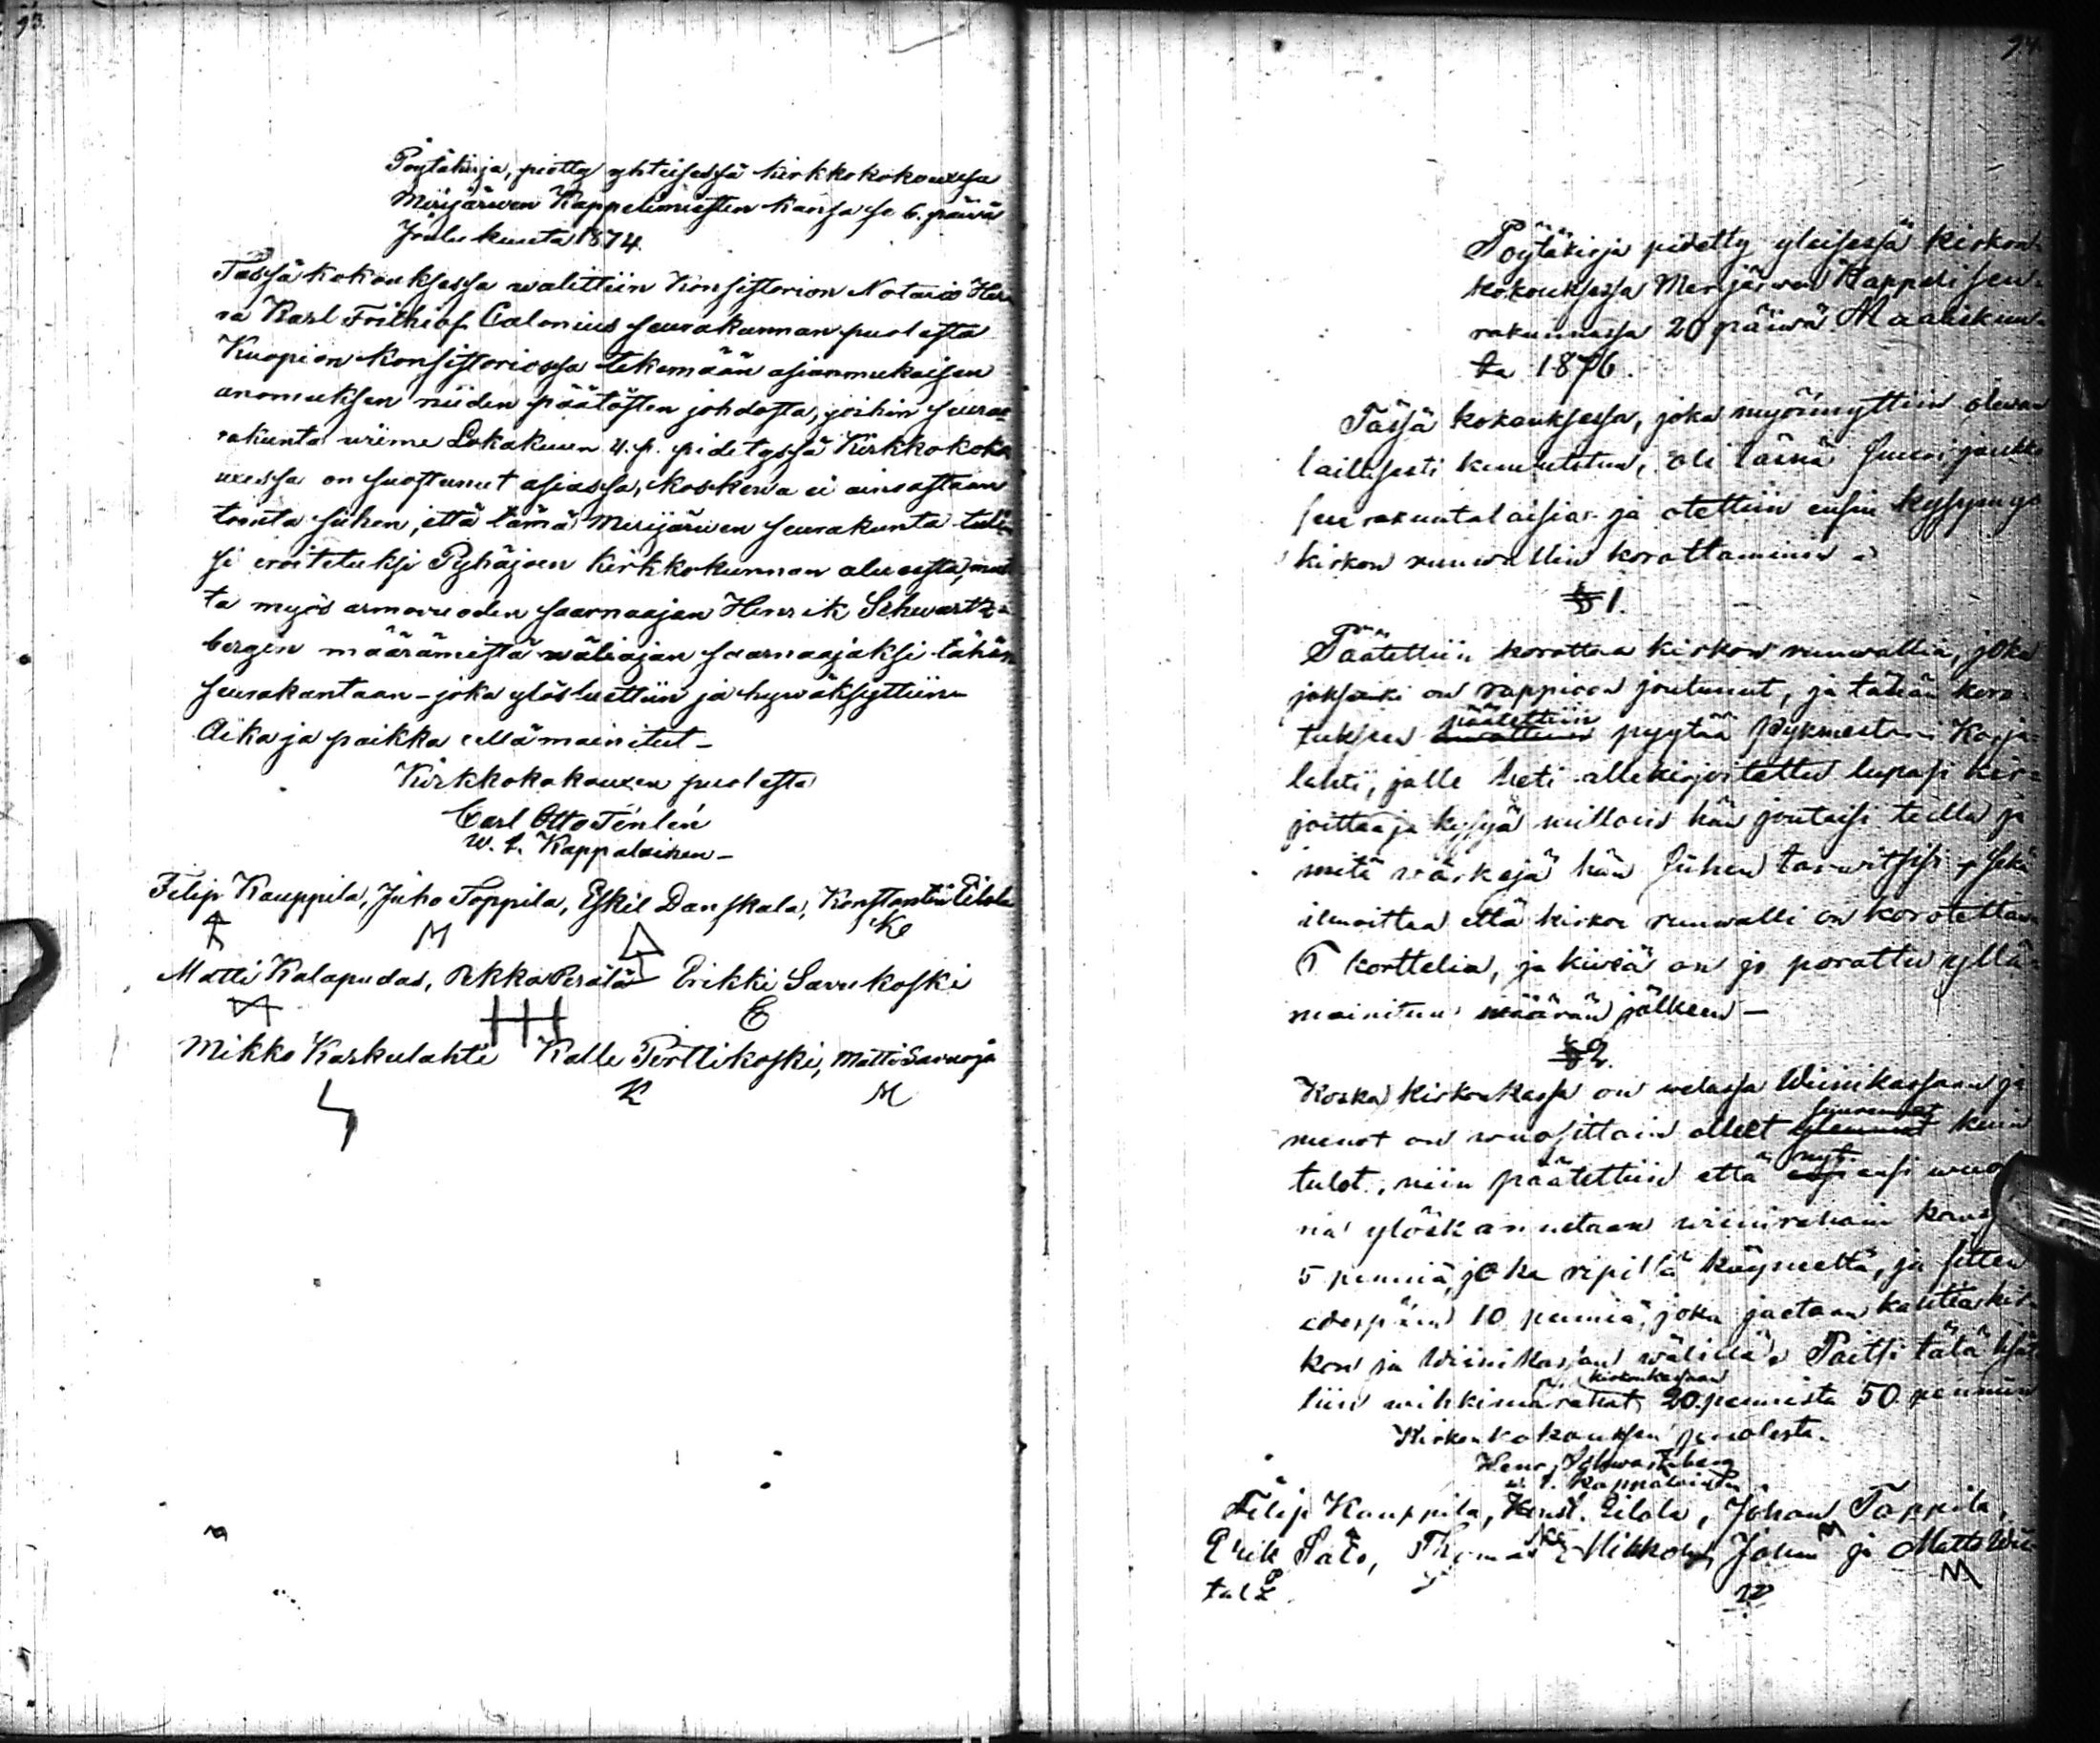 93.
Pöytäkirja, piätty yhteisessä kirkkokokouxessa
Merijärwen Kappelimiesten kansa se 6. päiwä
Joulukuuta 1874.
Tässä kokouksessa walittiin Konsistorion Notario Her-
ra Karl Frithiof Calonius seurakunnan puolesta
Kuopion Konsistoriossa tekemään asianmukaisen
anomuksen niiden päätösten johdosta, joihin seura-
rakunta wiime Lokakuun 4. p. pidetyssä Kirkkokoko
uxessa on suostunut asiassa, koskewa ei ainoastaan
tointa siihen, että tämä Merijärwen seurakunta tuli-
si eroitetuksi Pyhäjoen kirkkokunnan alueesta, mut
ta myös armowuoden saarnaajan Henrik Schwartz-
bergin määrämistä wäliajan saarnaajaksi tähän
seurakuntaan – joka ylösluettiin ja hywäksyttiin
Aika ja paikka ellämainitut –
Kirkkokokouxen puolesta
Carl Otto Ténlén
w. t. Kappalainen –
Filip Kauppila, Juho Toppila, Eskil Danskala, Konstantin Eilola
M KE
Matti Kalapudas, Pekka Perälä Erikki Sarukoski
E
Mikko Karkulahti Kalle Perttikoski, Matti Saruoja
K M
94.
Pöytäkirja pidetty yleisessä kirkon-
kokouksessa Merijärwen Kappeliseu-
rakunnassa 20 päiwä Maaliskuu-
ta 1876.
Tässä kokouksessa, joka myönnyttiin olewan
laillisesti kuulutetun, oli läsnä suuri joukko
seurakuntalaisia ja otettiin ensin kysymys
kirkon muuwallin korottaminen
§ 1.
Päätettiin korottaa kirkon muuwallia, joka
joksenki on rappioon joutunut, ja tähän koro-
päätettiin
tuksen pyytää Karja-
lahti, jolle heti allekirjoitettu lupasi kir-
joittaa ja kysyä milloin hän joutaisi teille ja
mitä wärkejä hän siihen tarwitsisi, sekä
ilmoittaa että kirkon muuwalli on korotettawa
korttelia, ja kiwiä on jo porattu yllä-
mainitun määrän jälkeen –
§ 2.
Koska kirkonkassa on welassa Wiinikassaan ja
suuremmat
menot on wuosittain olleet kuin
nyt
tulot, niin päätettiin että ensi wuon
na ylöskannetaan wiinirahain kans
5 penniä joka ripillä käyneeltä, ja sitten
edespäin 10 penniä, joka jaetaan kahtia kir-
kon ja Wiinikassan wälillä. Paitsi tätä
kirkonkassaan
tiin wihkimärahat 20 pennistä 50 penniin
Kirkonkokouksen puolesta.
Henr. Schwartzberg
w. t. Kappalainen
Filip Kauppila, Konst. Eilola, Johan Toppila,
KE M
Erik Salo, Thomas Mikkola, Johan ja Matts Wii-
tala
M